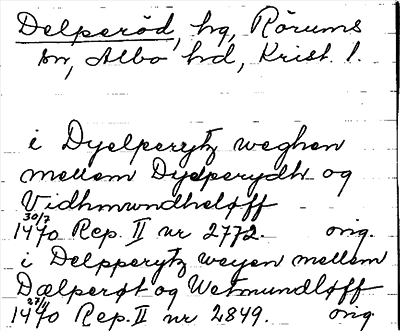 Delperöd, hg, Rörums
sn, Albo hd, Krist. l.
i Dyelperytz weghen
mellem Dyelperydh og
Vidhmundheløff
30/7 1470 Rep. II nr 2772. orig.
i Delpperytz weyen mellem
Dælperøt og Wetmundløff
27/11 1470 Rep. II nr 2849. orig